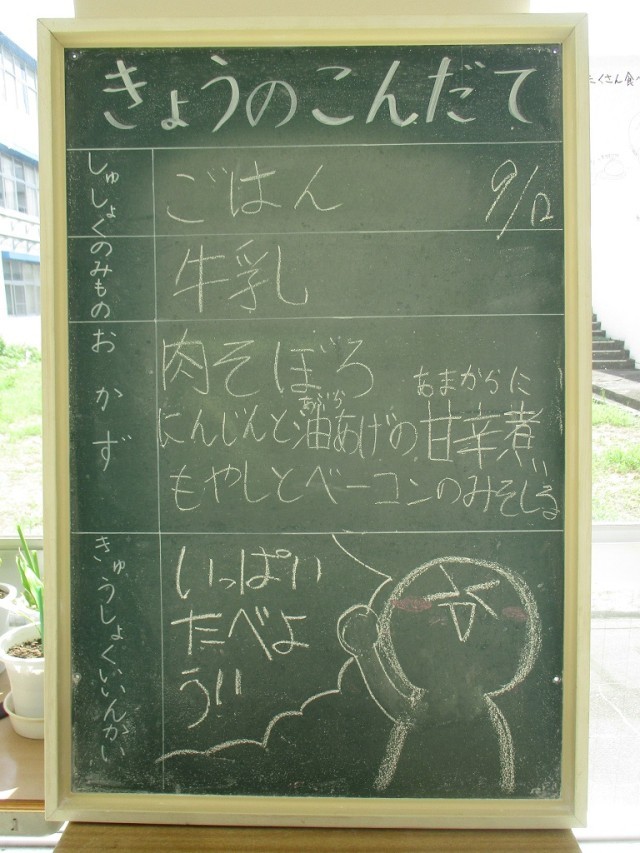 きょうのこんだて
しゅしょく
ごはん
9/12
のみもの
牛乳
おかず
肉そぼろ
あぶら
あまからに
にんじんと油あげの甘辛煮
もやしとベーコンのみそしる
きゅうしょくいいんかい
いっぱい
たべよ
う!!
たくさん食べ